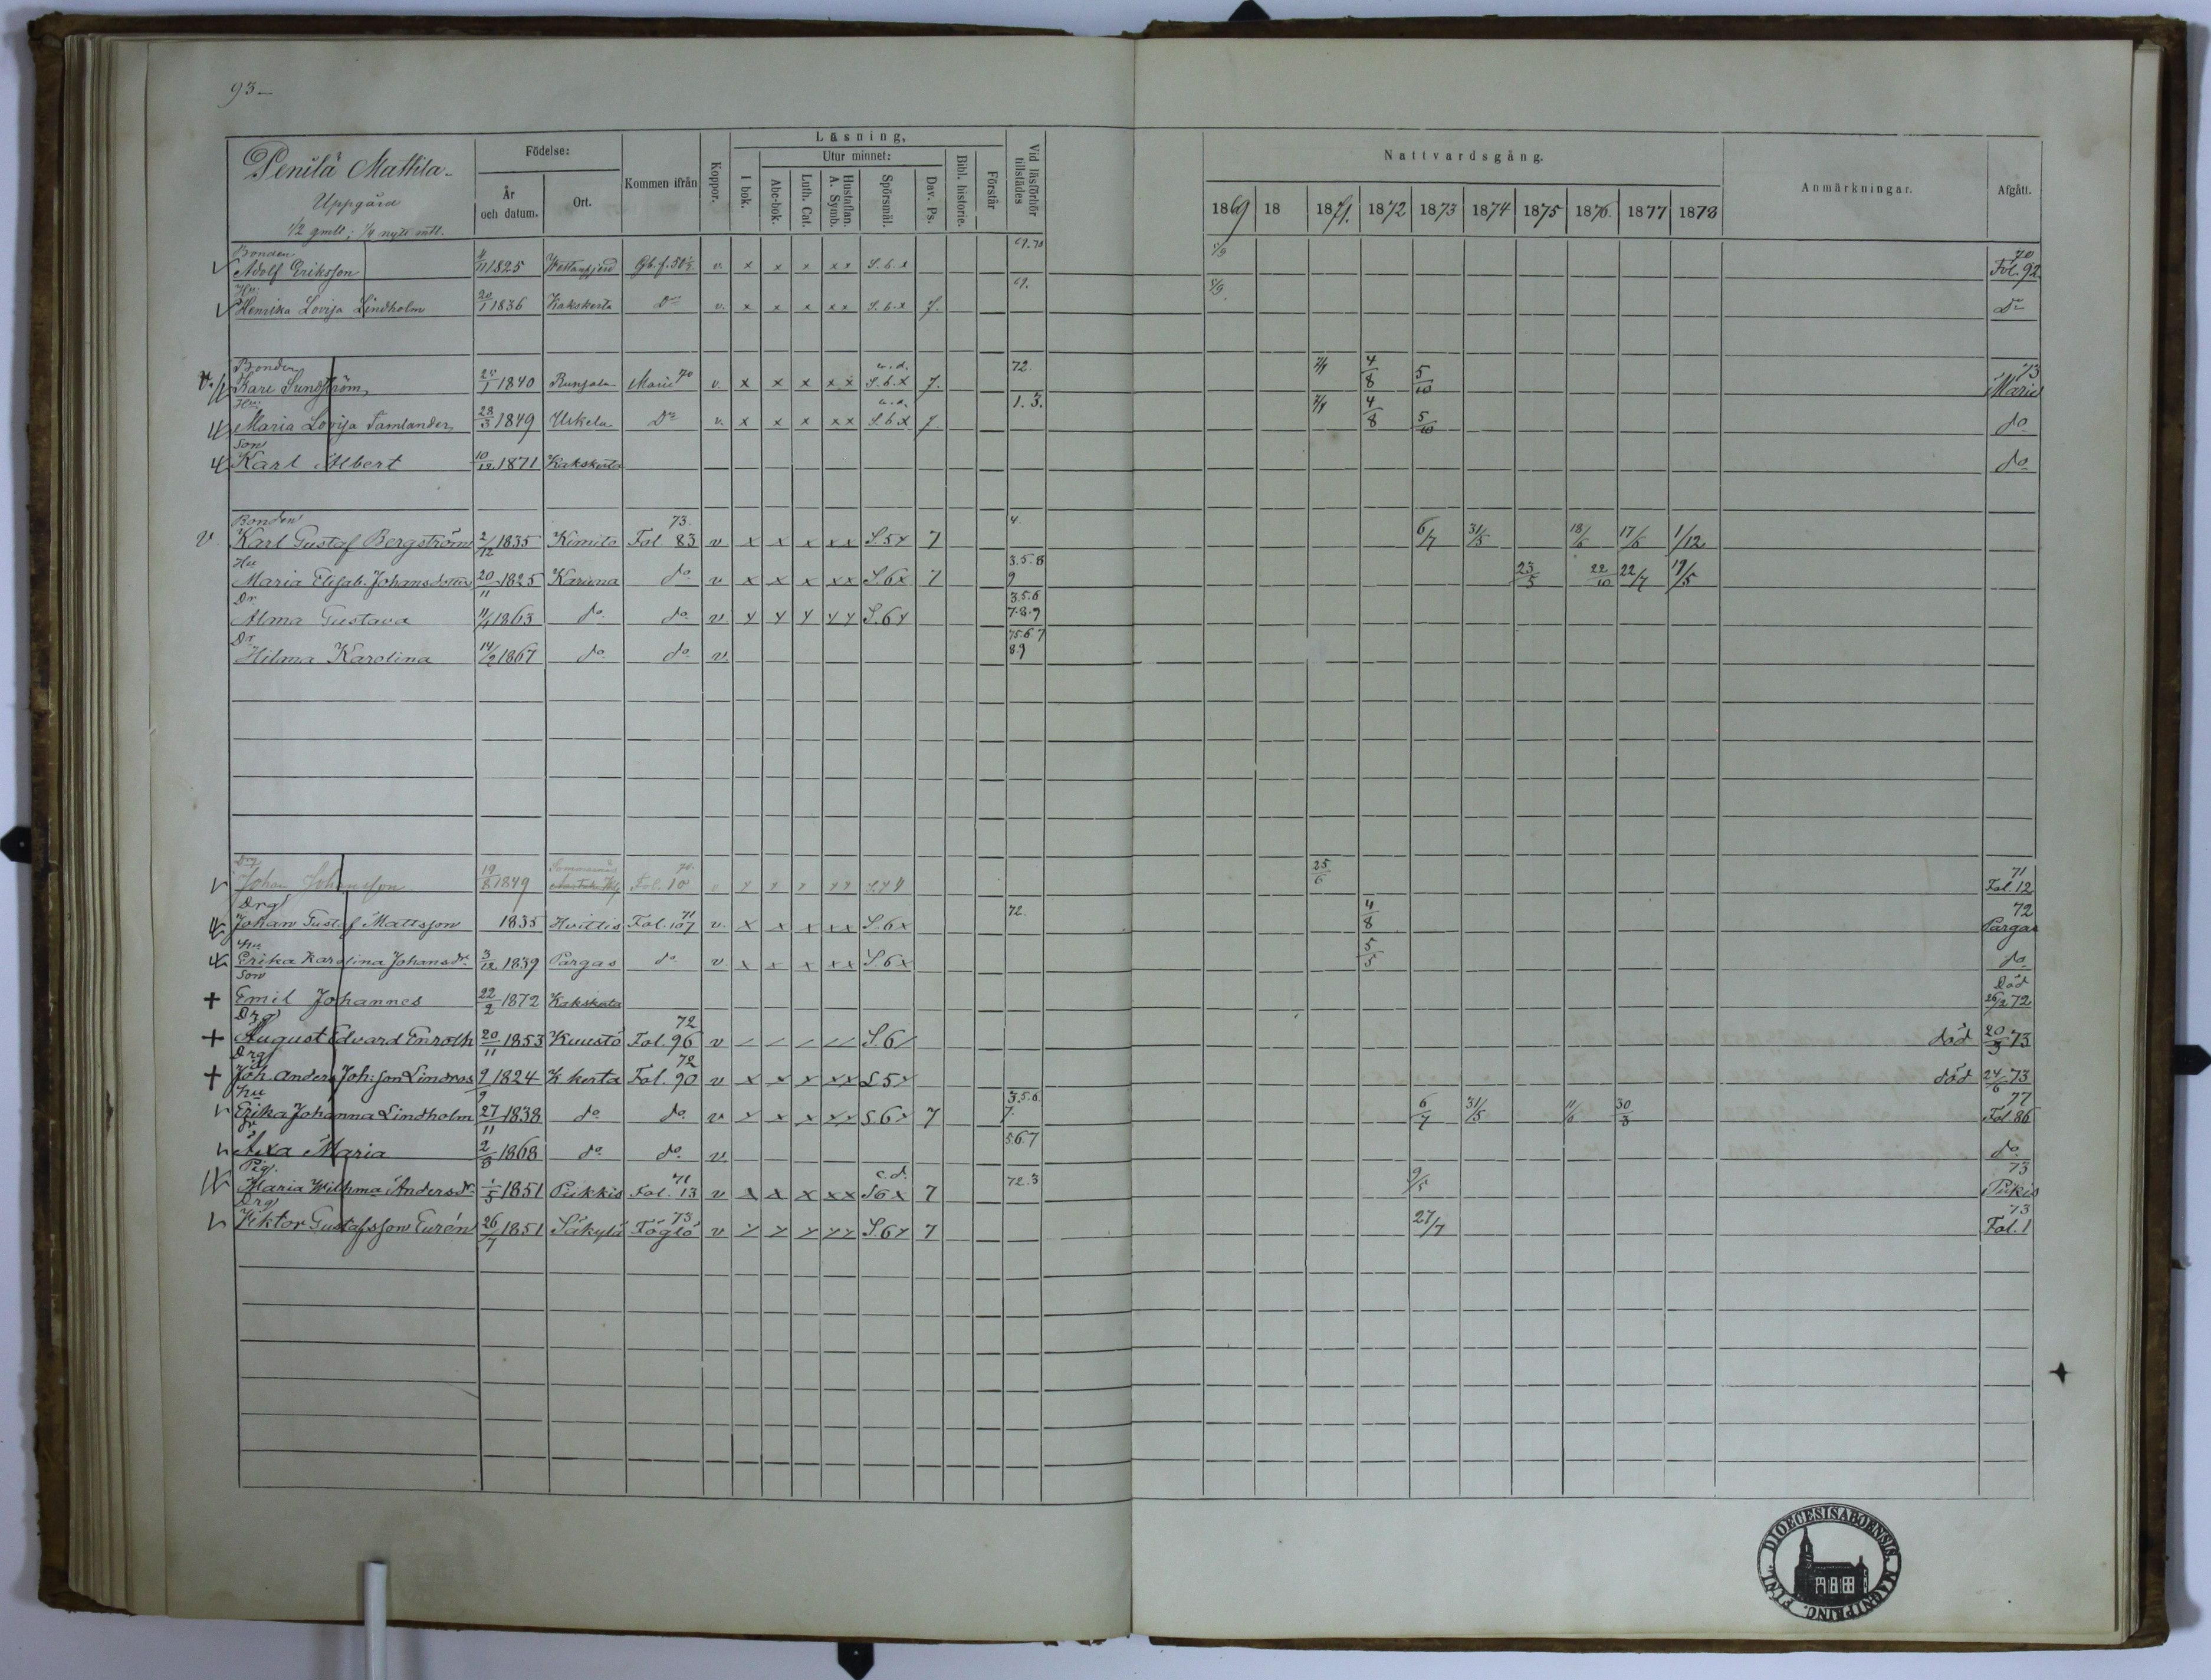 93
Penilä Mattila
Uppgård
1/2 gmlt; 1/4 nytt mtl.
Födelse:
År och datum.
Ort.
Kommen ifrån
Koppor.
Läsning,
I bok.
Utur minnet:
Abc-bok.
Luth. Cat.
Hustaflan. A. Symb.
Spörsmål.
Dav. Ps.
Bibl. historie.
Förstår
Vid läsförhör tillstädes
Nattvardsgång.
1869 18 1871. 1872 1873 1874 1875 1876. 1877 1878
Anmärkningar.
Afgått.
Bonden
Adolf Eriksson 11 1825 v. x x x x x S. 6. x 69.70 5/9 70 Fol. 92
Hu:
Henrika Lovisa Lindholm 20/1 1836 Kakskerta Do v. x x x x x S. 6. x 7. 69. 5/9 Do
Bonden
Karl Sundström 1840 Runsala Marie 70 v. x x x x x S. 6. x 7. 72. 4/8 5/10 73 Marie
Hu:
Maria Lovisa Tamlander 28/3 1849 Uskela Do v. x x x x x S. 6 x 7 1. 3. 4/8 5/10 do
Son
Karl Albert 10/12 1871 Kakskerta do
Bonden
v Karl Gustaf Bergström 2/12 1835 Kimito 73. Fol. 83 v x x x x x S. 5 x 7 4. 6/7 31/5 18/6 17/6 1/12
Hu
Maria Elisab. Johansdotter 20/11 1825 Karuna do v x x x x x S. 6 x 7 3.5.8 9 23/5 22/10 22/7 19/5
Dr
Alma Gustava 11/4 1863 do do v x x x x x S. 6 x 3.5.6 7.8.9
Dr
Hilma Karolina 14/2 1867 do do v. 75.6.7 8.9
Drg
Johan Johansson 19/8 1849 70. Fol. 10 v x x x x x 25/6 71 Fol. 12
Drg
Johan Gust.f Mattsson 1835 Hvittis 71 Fol. 107 v. x x x x x S. 6 x 72. 4/8 72 Pargas
Hu
Erika Karolina Johansdr 3/12 1839 Pargas do v. x x x x x S. 6 x 5/5 do
Son
+ Emil Johannes 22/2 1872 Kakskerta Död 26/2 72
Drg
+ August Edvard Enroth 20/11 1853 Kuustö 72 Fol. 96 v S. 6 död 20/3 73
Drg
+ Joh. Anders Joh:son Lindros 9/9 1824 K.kerta 72 Fol. 90 v x x x x x S 5 x död 24/6 73
Hu
Erika Johanna Lindholm 27/11 1838 do do v x x x x x S. 6 x 7 3.5.6. 7. 6/7 31/5 11/6 30/3 77 Fol. 86
Dr
Axa Maria 2/8 1868 do do v. 5.6.7 do
Pig.
Maria Wilhma Andersdr 1/5 1851 Piikkis 71 Fol. 13 v x x x x x S 6 x 7 72.3 9/5 73 Piikis
Drg
Viktor Gustafsson Eurén 26/7 1851 Säkylä 73 Föglö v x x x x x S. 6 x 7 27/7 73 Fol. 1
DIOECESIS ABOENSIS. MAGNI PRINC. FINL.